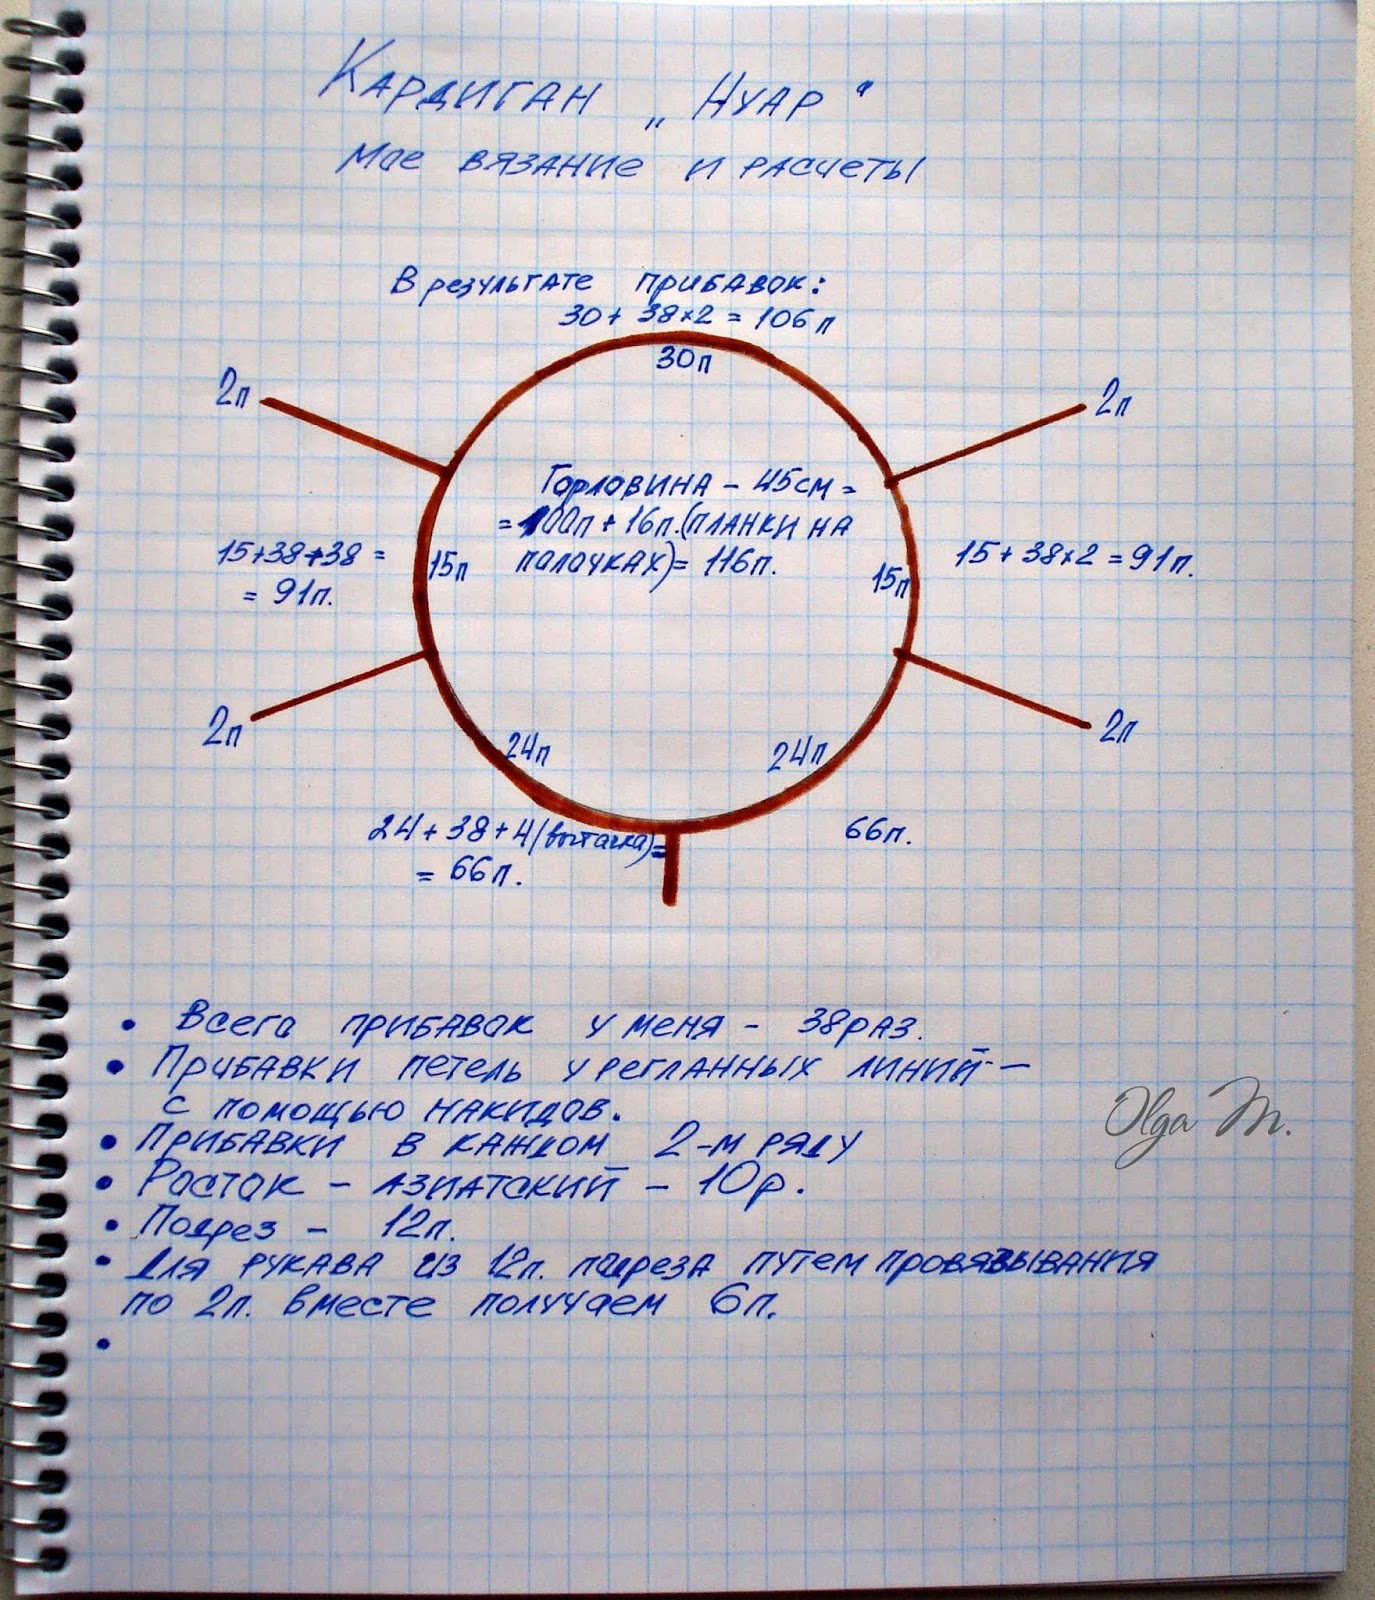 Кардиган „Нуар"
Мое вязание и расчеты
В результате прибавок:
30 + 38×2 = 106п
30п
2п
2п
Горловина – 45см =
= 100п + 16п.(планки на
палочках) = 116п.
15+38+38 =
= 91п.
15п
15п
15 + 38×2 = 91п.
2п
2п
24п
24п
24 + 38 + 4(вытачка) =
= 66п.
66п.
• Всего прибавок у меня – 38 раз.
• Прибавки петель у регланных линий –
с помощью накидов.
• Прибавки в каждом 2-м ряду
• Росток – азиатский – 10р.
• Подрез – 12п.
• Для рукава из 12п. подреза путем провязывания
по 2п. вместе получаем 6п.
•
Olga M.